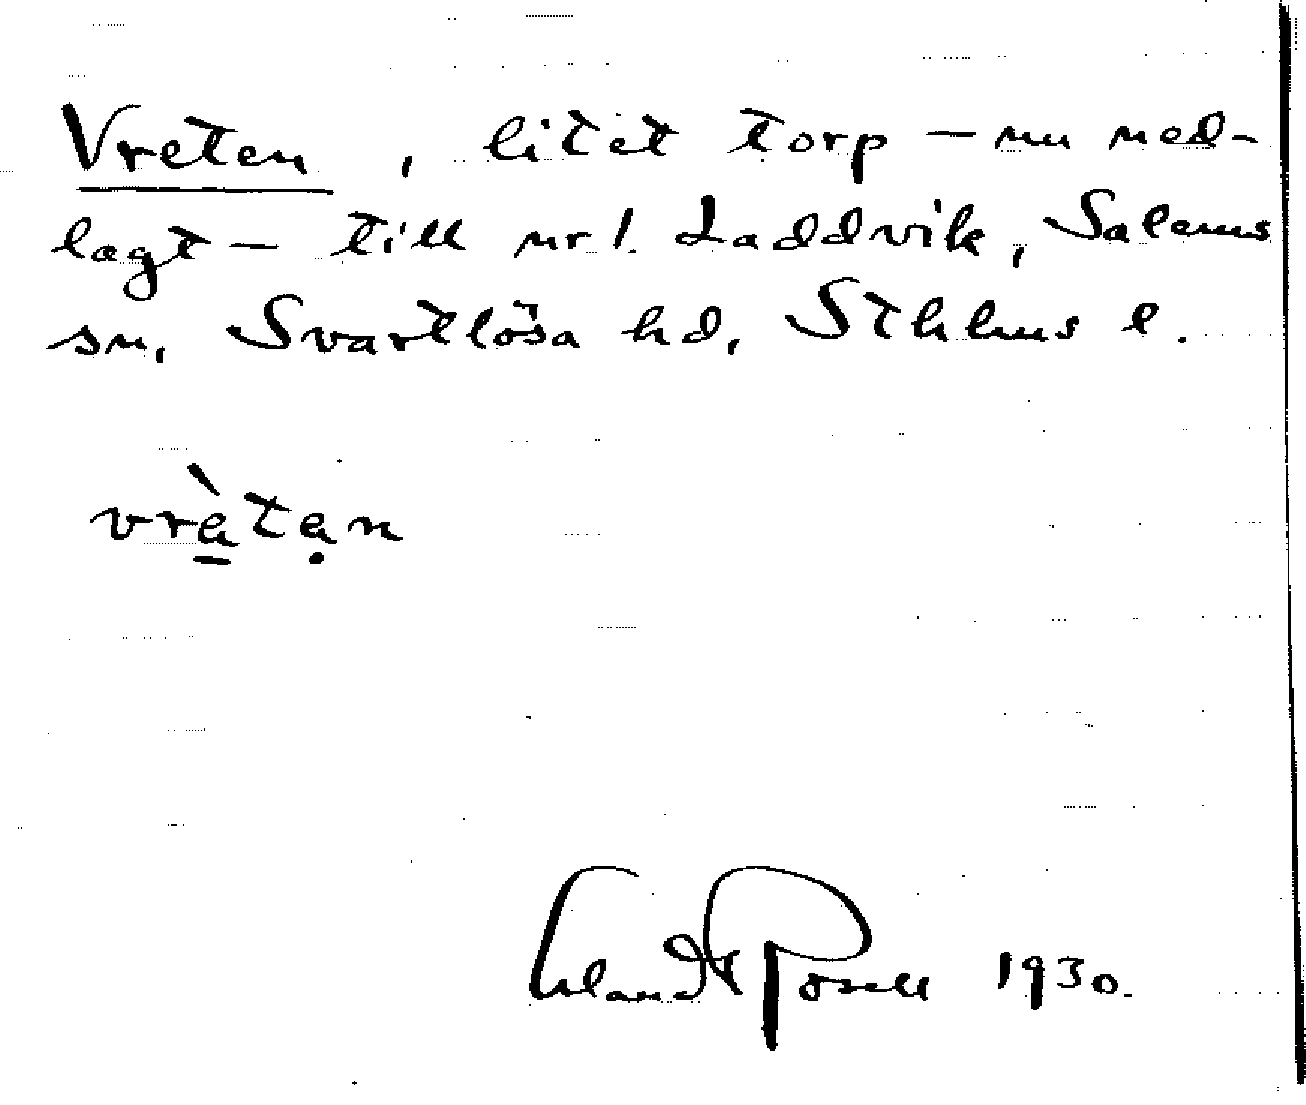 Vreten, litet torp – nu ned-
lagt – till nr 1. Laddvik, Salems
sn, Svartlösa hd, Sthlms l.
vrètạn
Erland Rosell 1930.